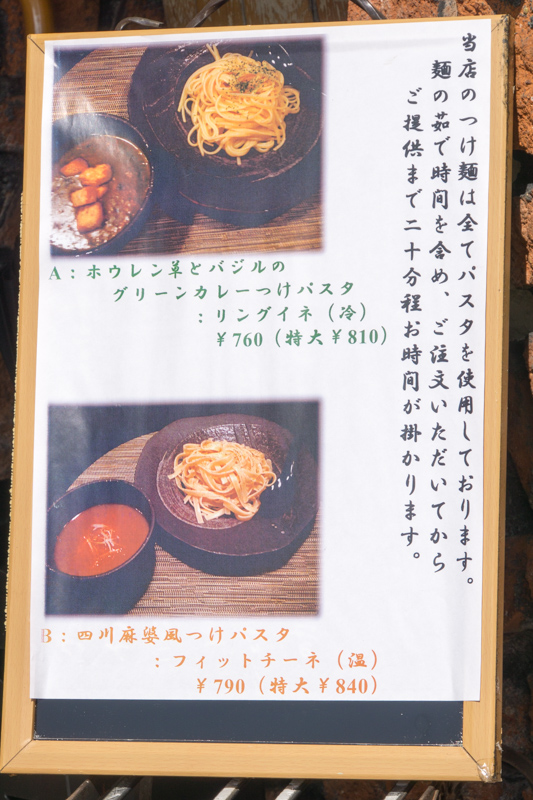 当店のつけ麺は全てパスタを使用しております。
麺の茹で時間を含め、ご注文いただいてから
ご提供まで二十分程お時間が掛かります。
A：ホウレン草とバジルの
グリーンカレーつけパスタ
：リングイネ（冷）
￥760（特大￥810）
B：四川麻婆風つけパスタ
：フィットチーネ（温）
￥790（特大￥840）